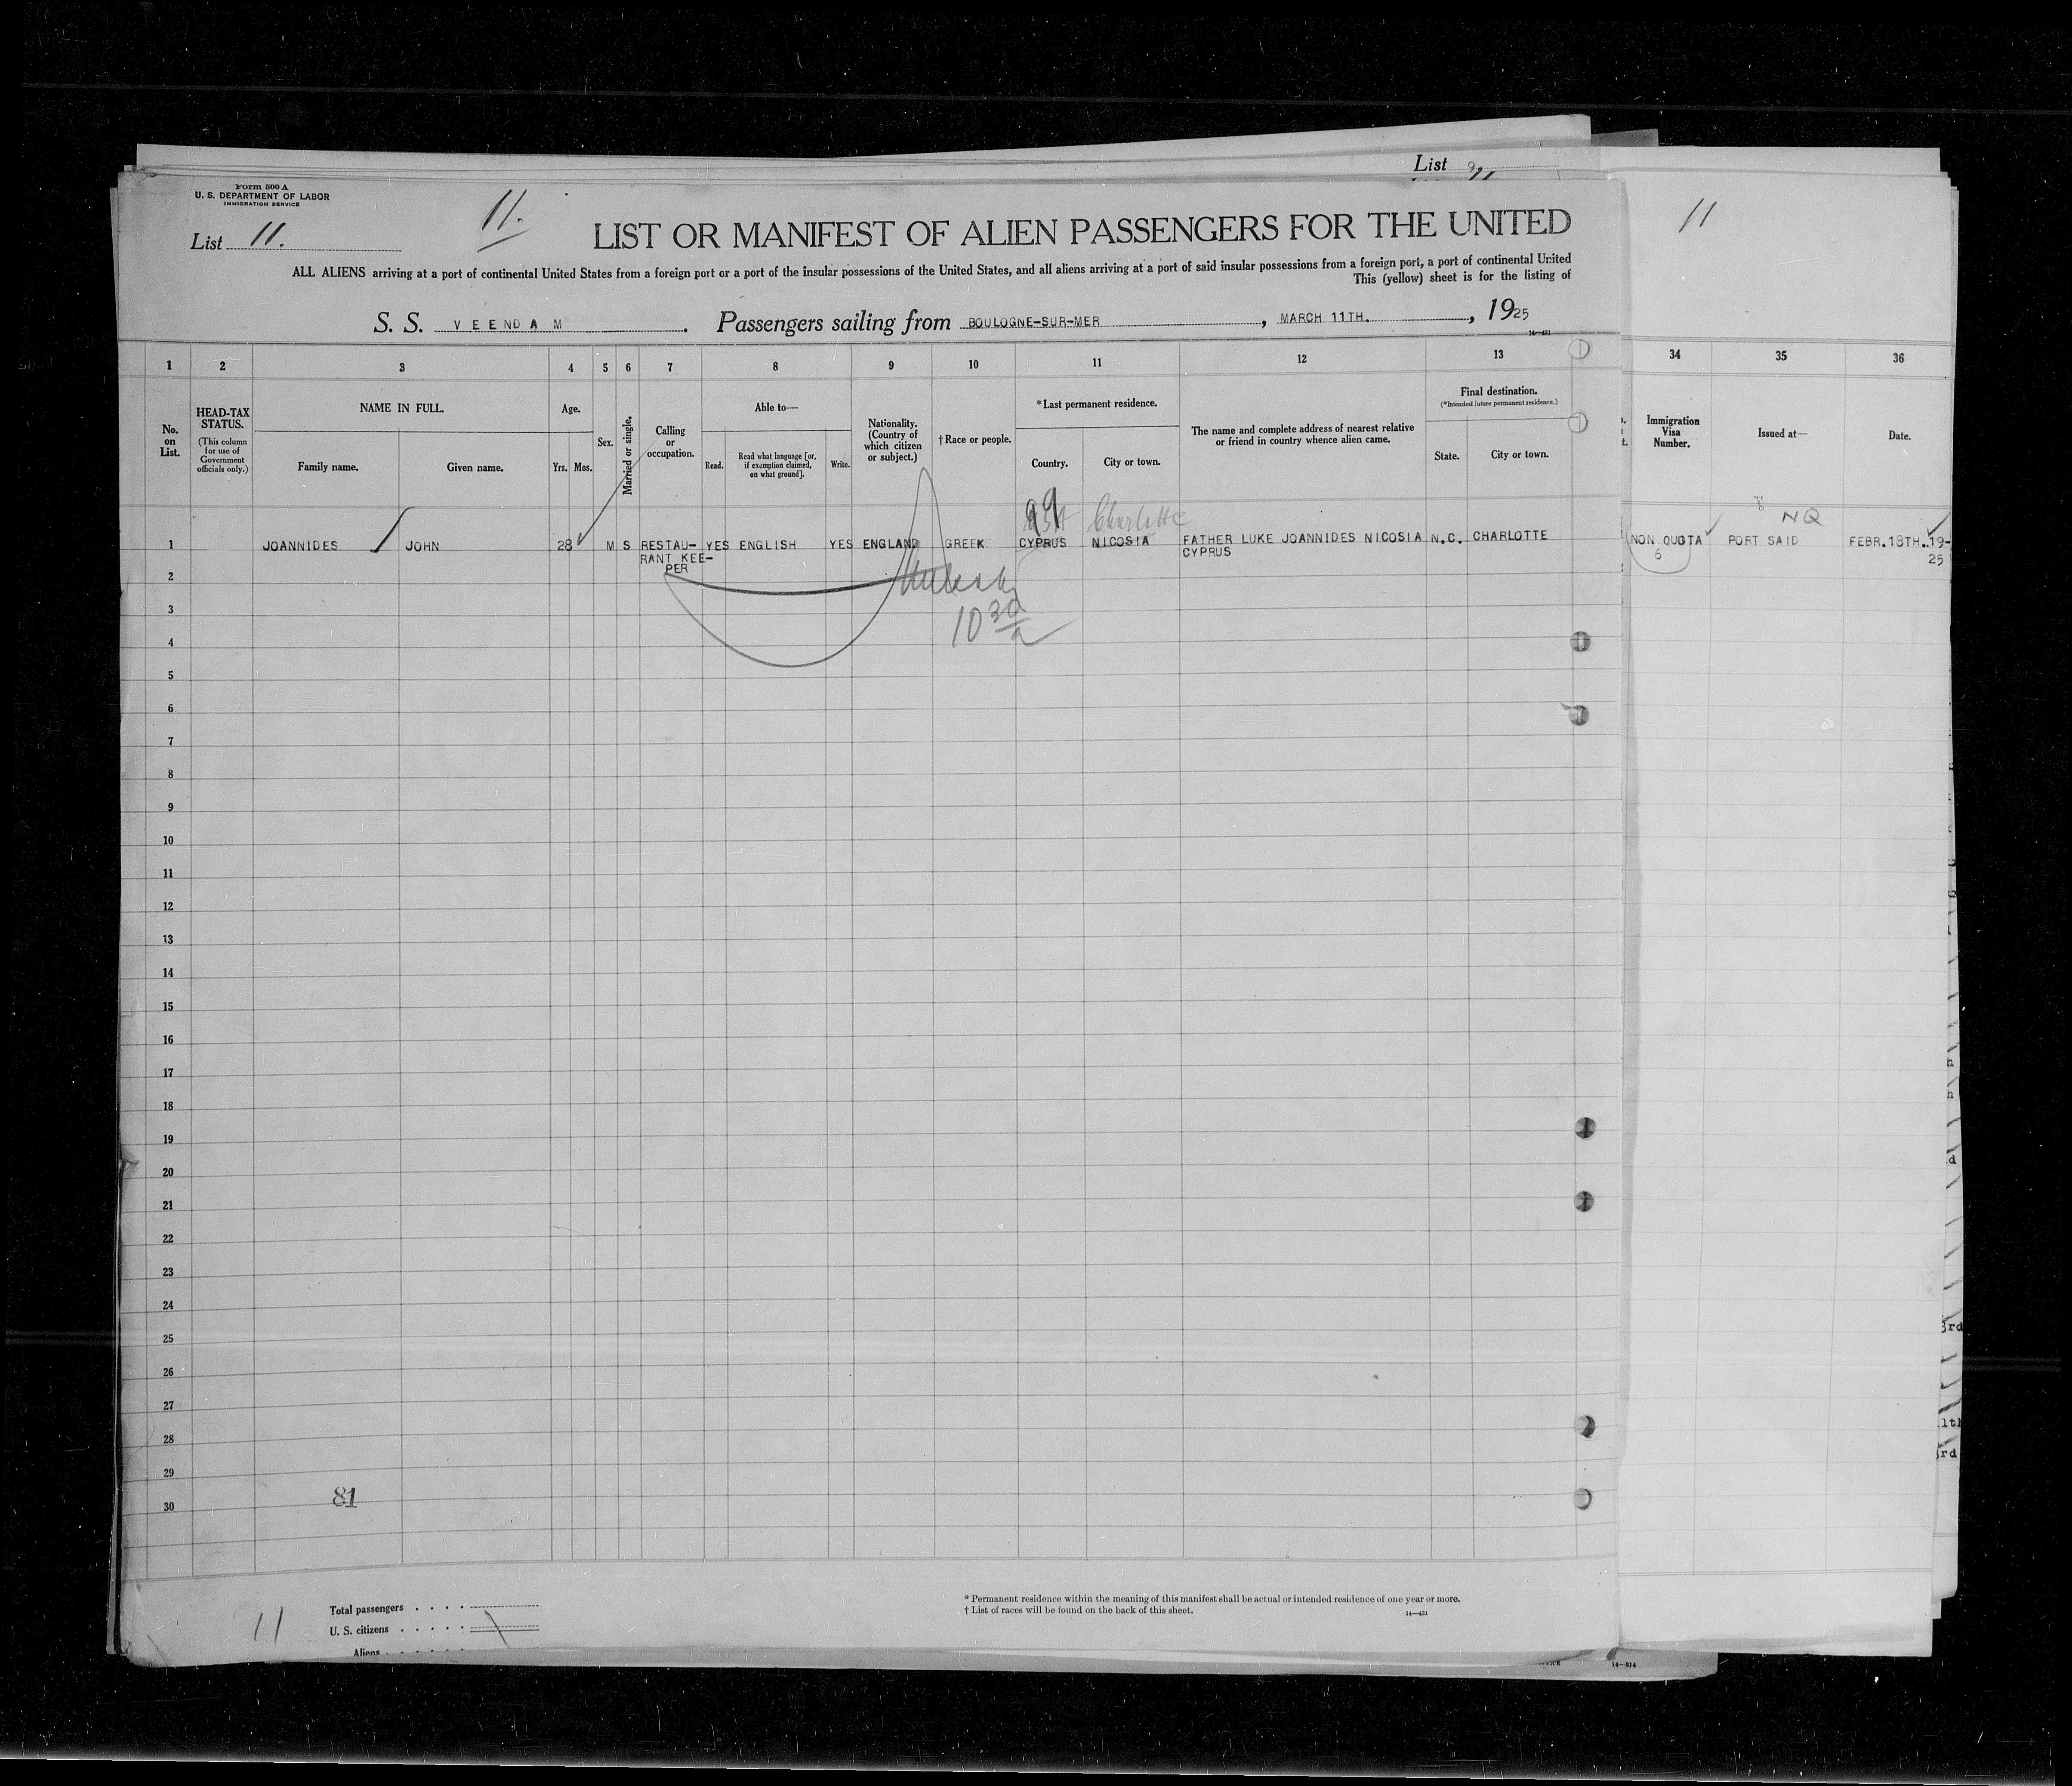 List
Form 500 A
U. S. DEPARTMENT OF LABOR
IMMIGRATION SERVICE
List 11.
11.
11
LIST OR MANIFEST OF ALIEN PASSENGERS FOR THE UNITED
ALL ALIENS arriving at a port of continental United States from a foreign port or a port of the insular possessions of the United States, and all aliens arriving at a port of said insular possessions from a foreign port, a port of continental United
This (yellow) sheet is for the listing of
S. S. VEENDAM. Passengers sailing from BOULOGNE-SUR-MER, MARCH 11TH., 1925
14—431
1 2 3 4 5 6 7 8 9 10 11 12 13 34 35 36
No. on List.
HEAD-TAX STATUS.
(This column for use of Government officials only.)
NAME IN FULL.
Family name. Given name.
Age.
Yrs. Mos.
Sex.
Married or single.
Calling or occupation.
Able to—
Read. Read what language [or, if exemption claimed, on what ground]. Write.
Nationality. (Country of which citizen or subject.)
†Race or people.
*Last permanent residence.
Country. City or town.
The name and complete address of nearest relative or friend in country whence alien came.
Final destination.
(*Intended future permanent residence.)
State. City or town.
Immigration Visa Number.
Issued at—
Date.
Charlotte
NQ
1 JOANNIDES JOHN 28 M S RESTAU- YES ENGLISH YES ENGLAND GREEK CYPRUS NICOSIA FATHER LUKE JOANNIDES NICOSIA N.C. CHARLOTTE NON QUOTA PORT SAID FEBR.18TH.19-
RANT KEE- CYPRUS 6 25
PER
2
3
10 30
4
5
6
7
8
9
10
11
12
13
14
15
16
17
18
19
20
21
22
23
24
25
26
27
28
29
81
30
3rd
3rd
Total passengers
U. S. citizens
Aliens
11
* Permanent residence within the meaning of this manifest shall be actual or intended residence of one year or more.
† List of races will be found on the back of this sheet.
14—431
14—214